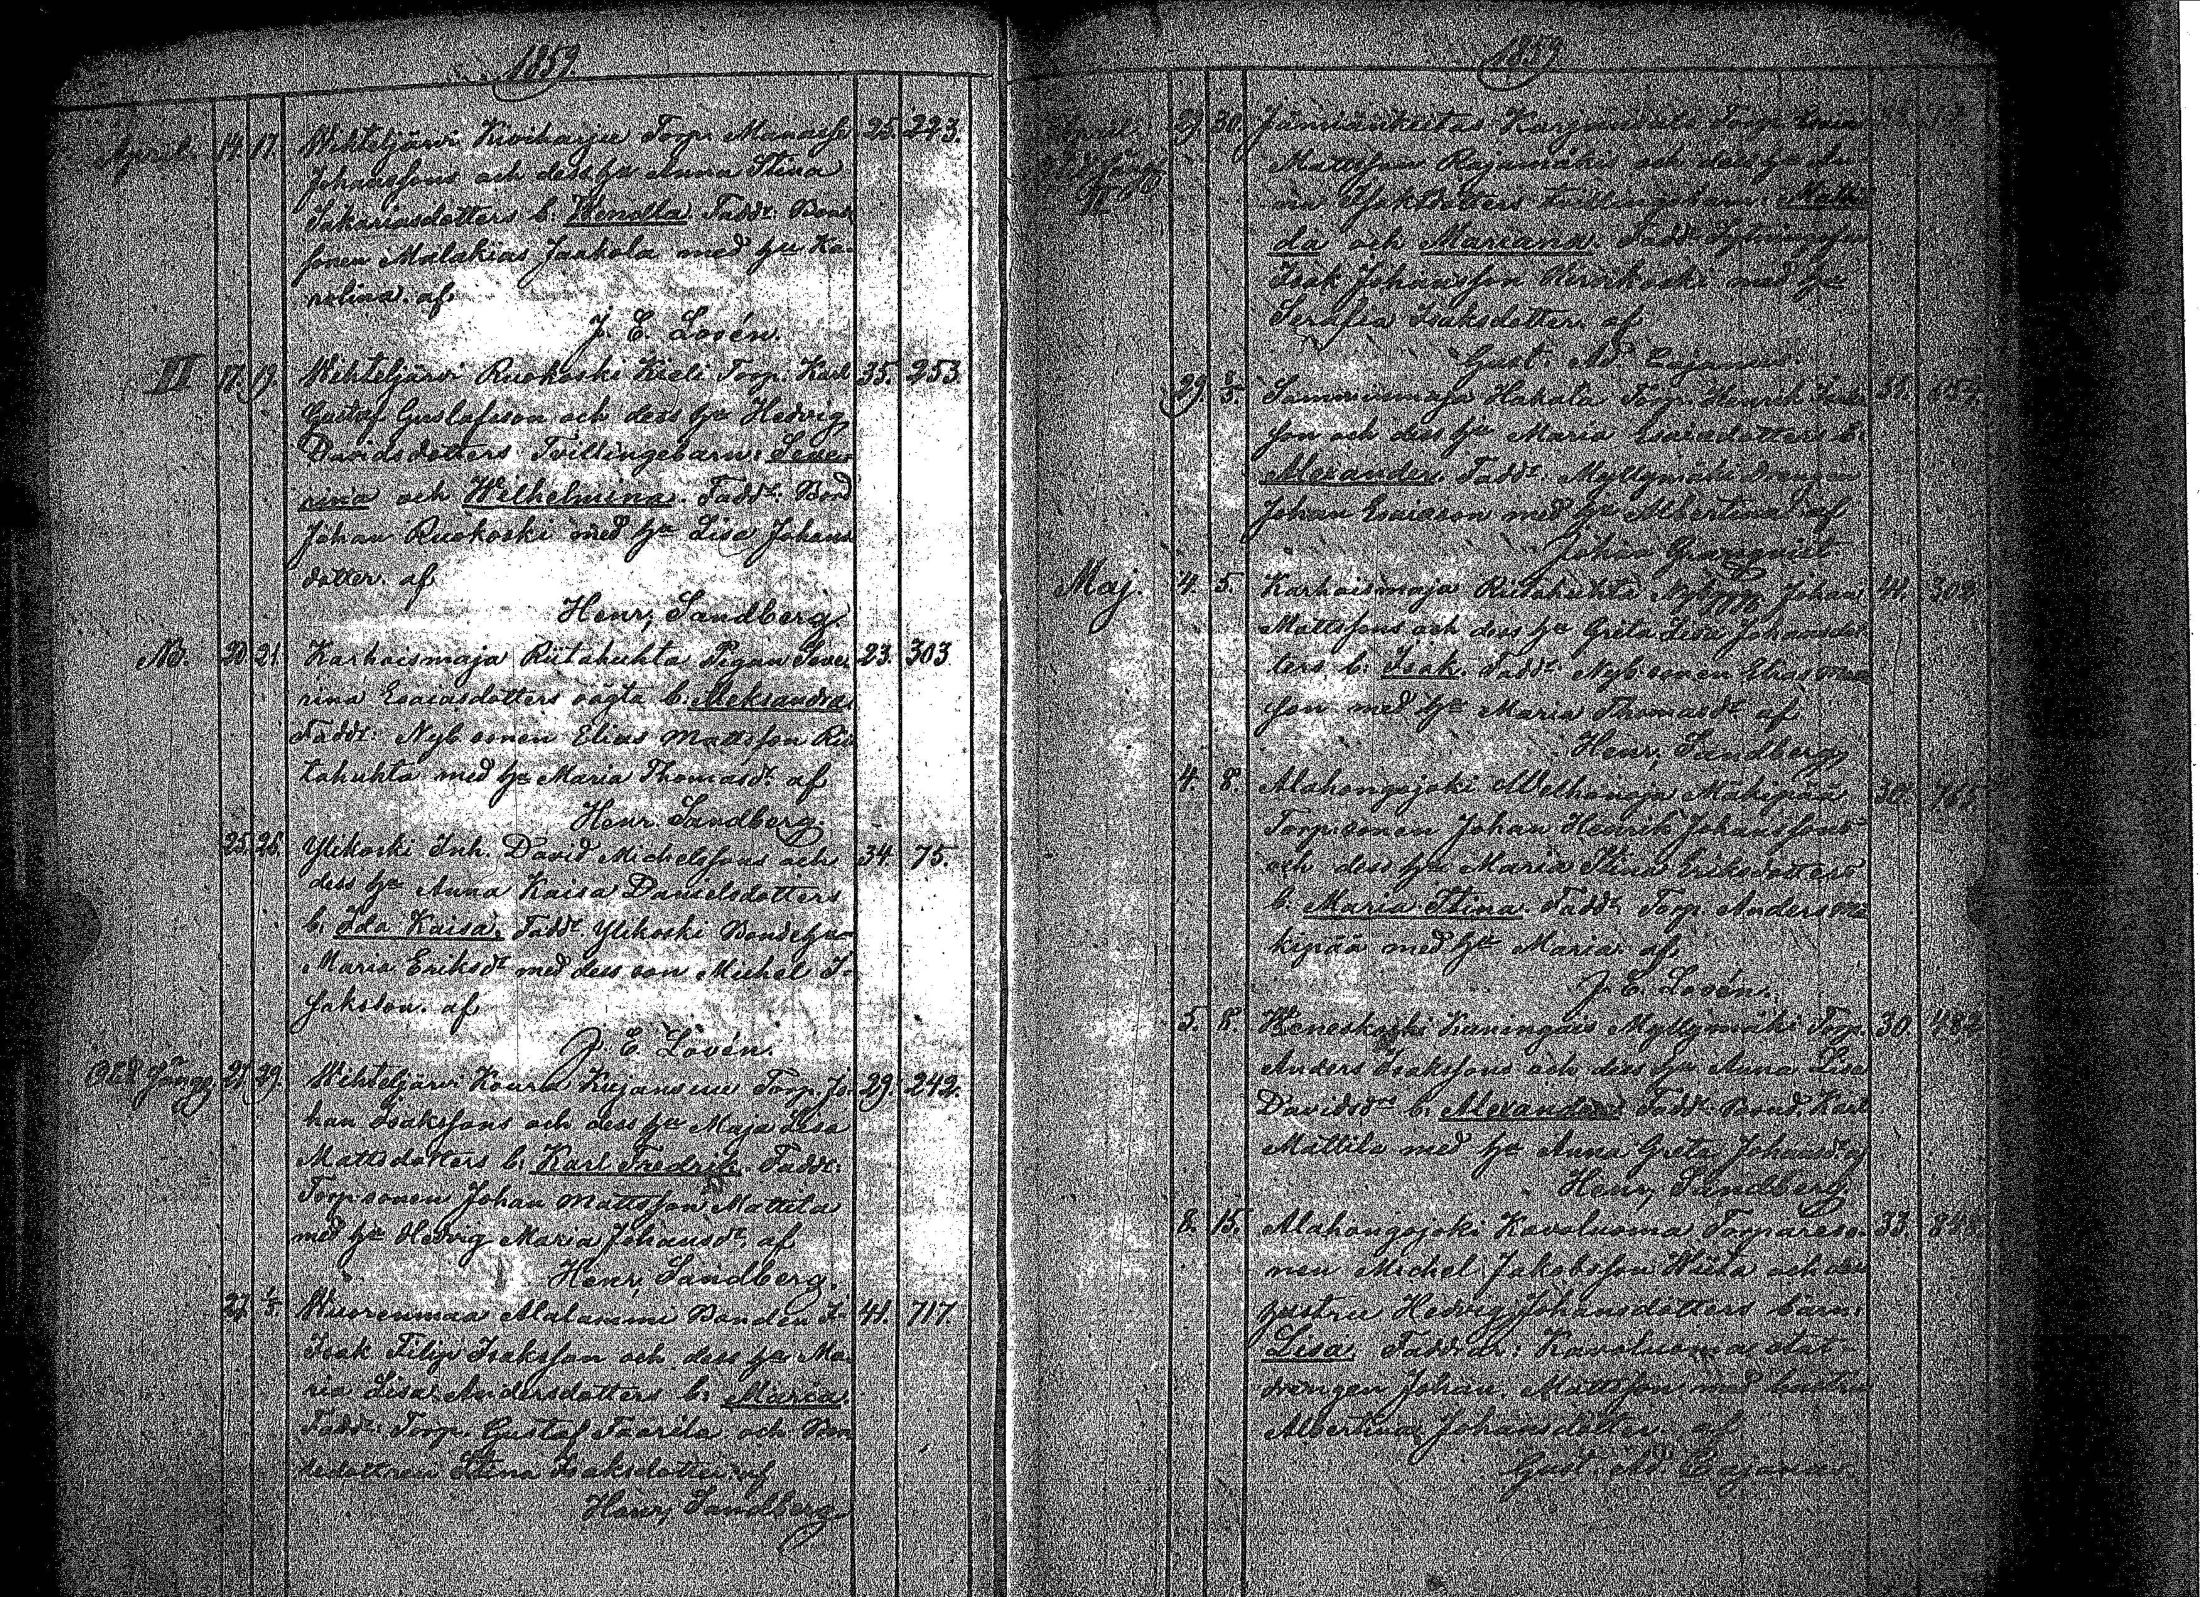 1859.
April. 14. 17. Wihteljärvi Kiviharju Torp. Manasse 25. 223.
Johanssons och dess hu Anna Stina
Sakariasdotters b. Wendla. Fadd. Bond
sonen Malakias Jaakola med hu Ka-
rolina. af
J. E. Lovén.
II 17. 19. Wihteljärvi Ruokoski Kieli Torp. Karl 35. 253.
Gustaf Gustafsson och dess hu Hedvig
Davidsdotters Tvillingebarn: Seve-
rina och Wilhelmina. Fadd. Bond
Johan Ruokoski med hu Lisa Johans
dotter. af
Henr. Sandberg.
No. 20. 21. Karhoismaja Riitahuhta Pigan Seve- 23. 303.
rina Esaiasdotters oägta b. Aleksandra.
Fadd. Nyb. sonen Elias Mattsson Rii-
tahuhta med hu Maria Thomasdr. af
Henr. Sandberg.
25. 26. Ylikoski Inh. David Michelssons och 34. 75.
dess hu Anna Kaisa Danielsdotters
b. Ida Kaisa. Fadd. Ylikoski Bondehu
Maria Eriksdr med dess son Michel I-
saksson. af
J. E. Lovén.
27. 29. Wihteljärvi Koura Kujansuu Torp. Jo- 29. 242.
han Isakssons och dess hu Maja Lisa
Mattsdotters b. Karl Fredrik. Fadd.
Torp. sonen Johan Mattsson Mattila
med hu Hedvig Maria Johansdr. af
Henr. Sandberg.
27. 1/5. Wuorenmaa Alalammi Bonden I- 41. 717.
Isak Filip Isaksson och dess hu Ma-
ria Lisa Andersdotters b. Maria.
Fadd. Torp. Gustaf Faarila och Bon
dedottren Stina Isaksdotter af
Henr. Sandberg
1859
April. 29. 30. Jämiänkeitas Karjanmaa Torp.
Mattsson Rajamäki och dess hu An-
na Isaksdotters tvillingebarn: Matil
da och Mariana. Fadd.
Isak Johansson med hu
Serafia Isaksdotter. af
Gust. Ad. Cajanus.
29. 1/5. Hakala Torp. Henrik Isaks 38. 654.
son och dess hu Maria Esaiasdotters b.
Alexander. Fadd. Myllymäki Drengen
Johan Esaiasson med hu Albertina af
Johan Granqvist.
Maj. 4. 5. Karhoismaja Riitahuhta Nyb. Johan 41. 302.
Mattssons och dess hu Greta Lisa Johansdot
ters b. Isak. Fadd. Nyb. sonen Elias Matts
son med hu Maria Thomasdr af
Henr. Sandberg
4. 8. Alahongojoki Welhonoja Mäkipää 30.
Torp. sonen Johan Henrik Johanssons
och dess hu Maria Stina Eriksdotters
b. Maria Stina. Fadd. Torp. Anders Mä
kipää med hu Maria. af
J. E. Lovén.
5. 8. Weneskoski Kuningais Myllymäki Torp. 30. 482
Anders Isakssons och dess hu Anna Lisa
Davidsdrs b. Alexander. Fadd. Bond. Karl
Mattila med hu Anna Greta Johansdr af
Henr. Sandberg
8. 15. Alahongojoki Kavaluoma Torpareso- 33.
nen Michel Jakobsson Wiita och dess
hustru Hedvig Johansdotters barn:
Lisa. Faddrar: Kavaluoma stat
drengen Johan Mattsson med hustru
Albertina Johansdotter. af
Gust. Ad. Cajanus